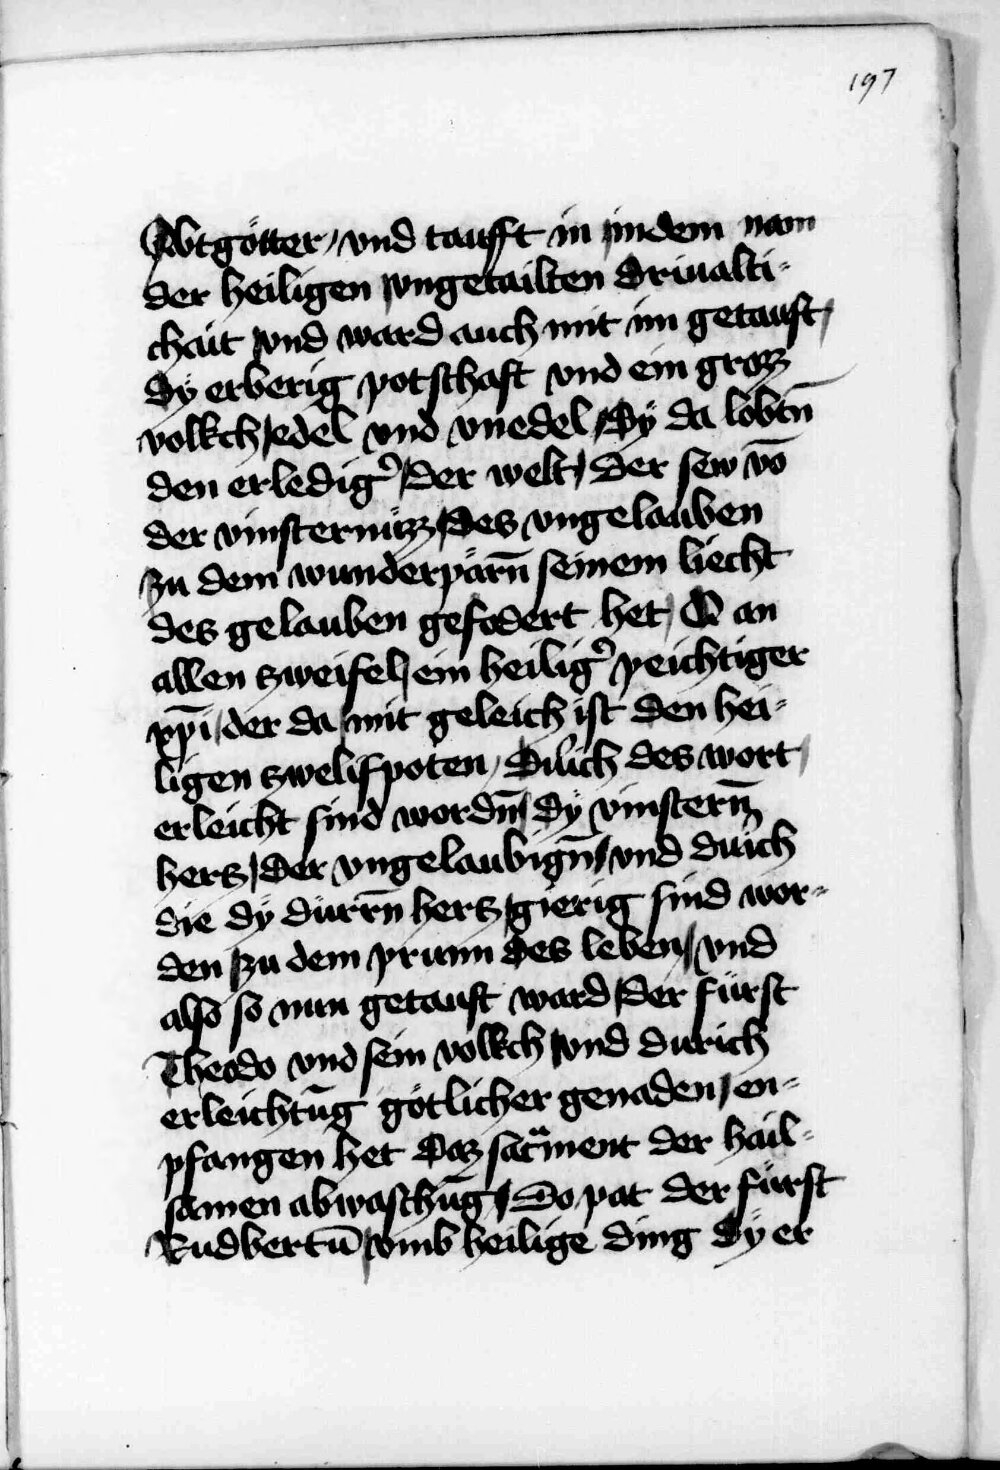 197
Abtgötter / vnd taufft in / in dem nam
der heiligen / vngetailten driualti=
chait / vnd ward auch mit im getauft /
dÿ erberig potschaft vnd ein grozz
volkch / edel vnd vnedel / dÿ da lobtn̄
den erledigᵉ / der welt / der sew vō
der vinsternüzz / des vngelauben
zu dem wunderpärn̄ seinem liecht
des gelauben gefodert het / O an
allen zweifel / ein heiligᵉ peichtiger
xp̄i / der da / mit geleich ist den hei=
ligen zwelifpoten / durich des wort /
erleicht sind wordn̄ / dÿ vinstern̄
hercz / der vngelaubign̄ / vnd durich
die dÿ dürrn̄ hercz / girig sind wor=
den / zu dem prunn des leben / vnd
also so nun getauft ward / der fürst
Theodo vnd sein volkch / vnd durich
erleichtūg götlicher genaden / en=
pfangen het daz sacᵃment der hail=
samen abwaschūg / do pat der fürst
Rudbertū / vmb heilige ding dÿ er